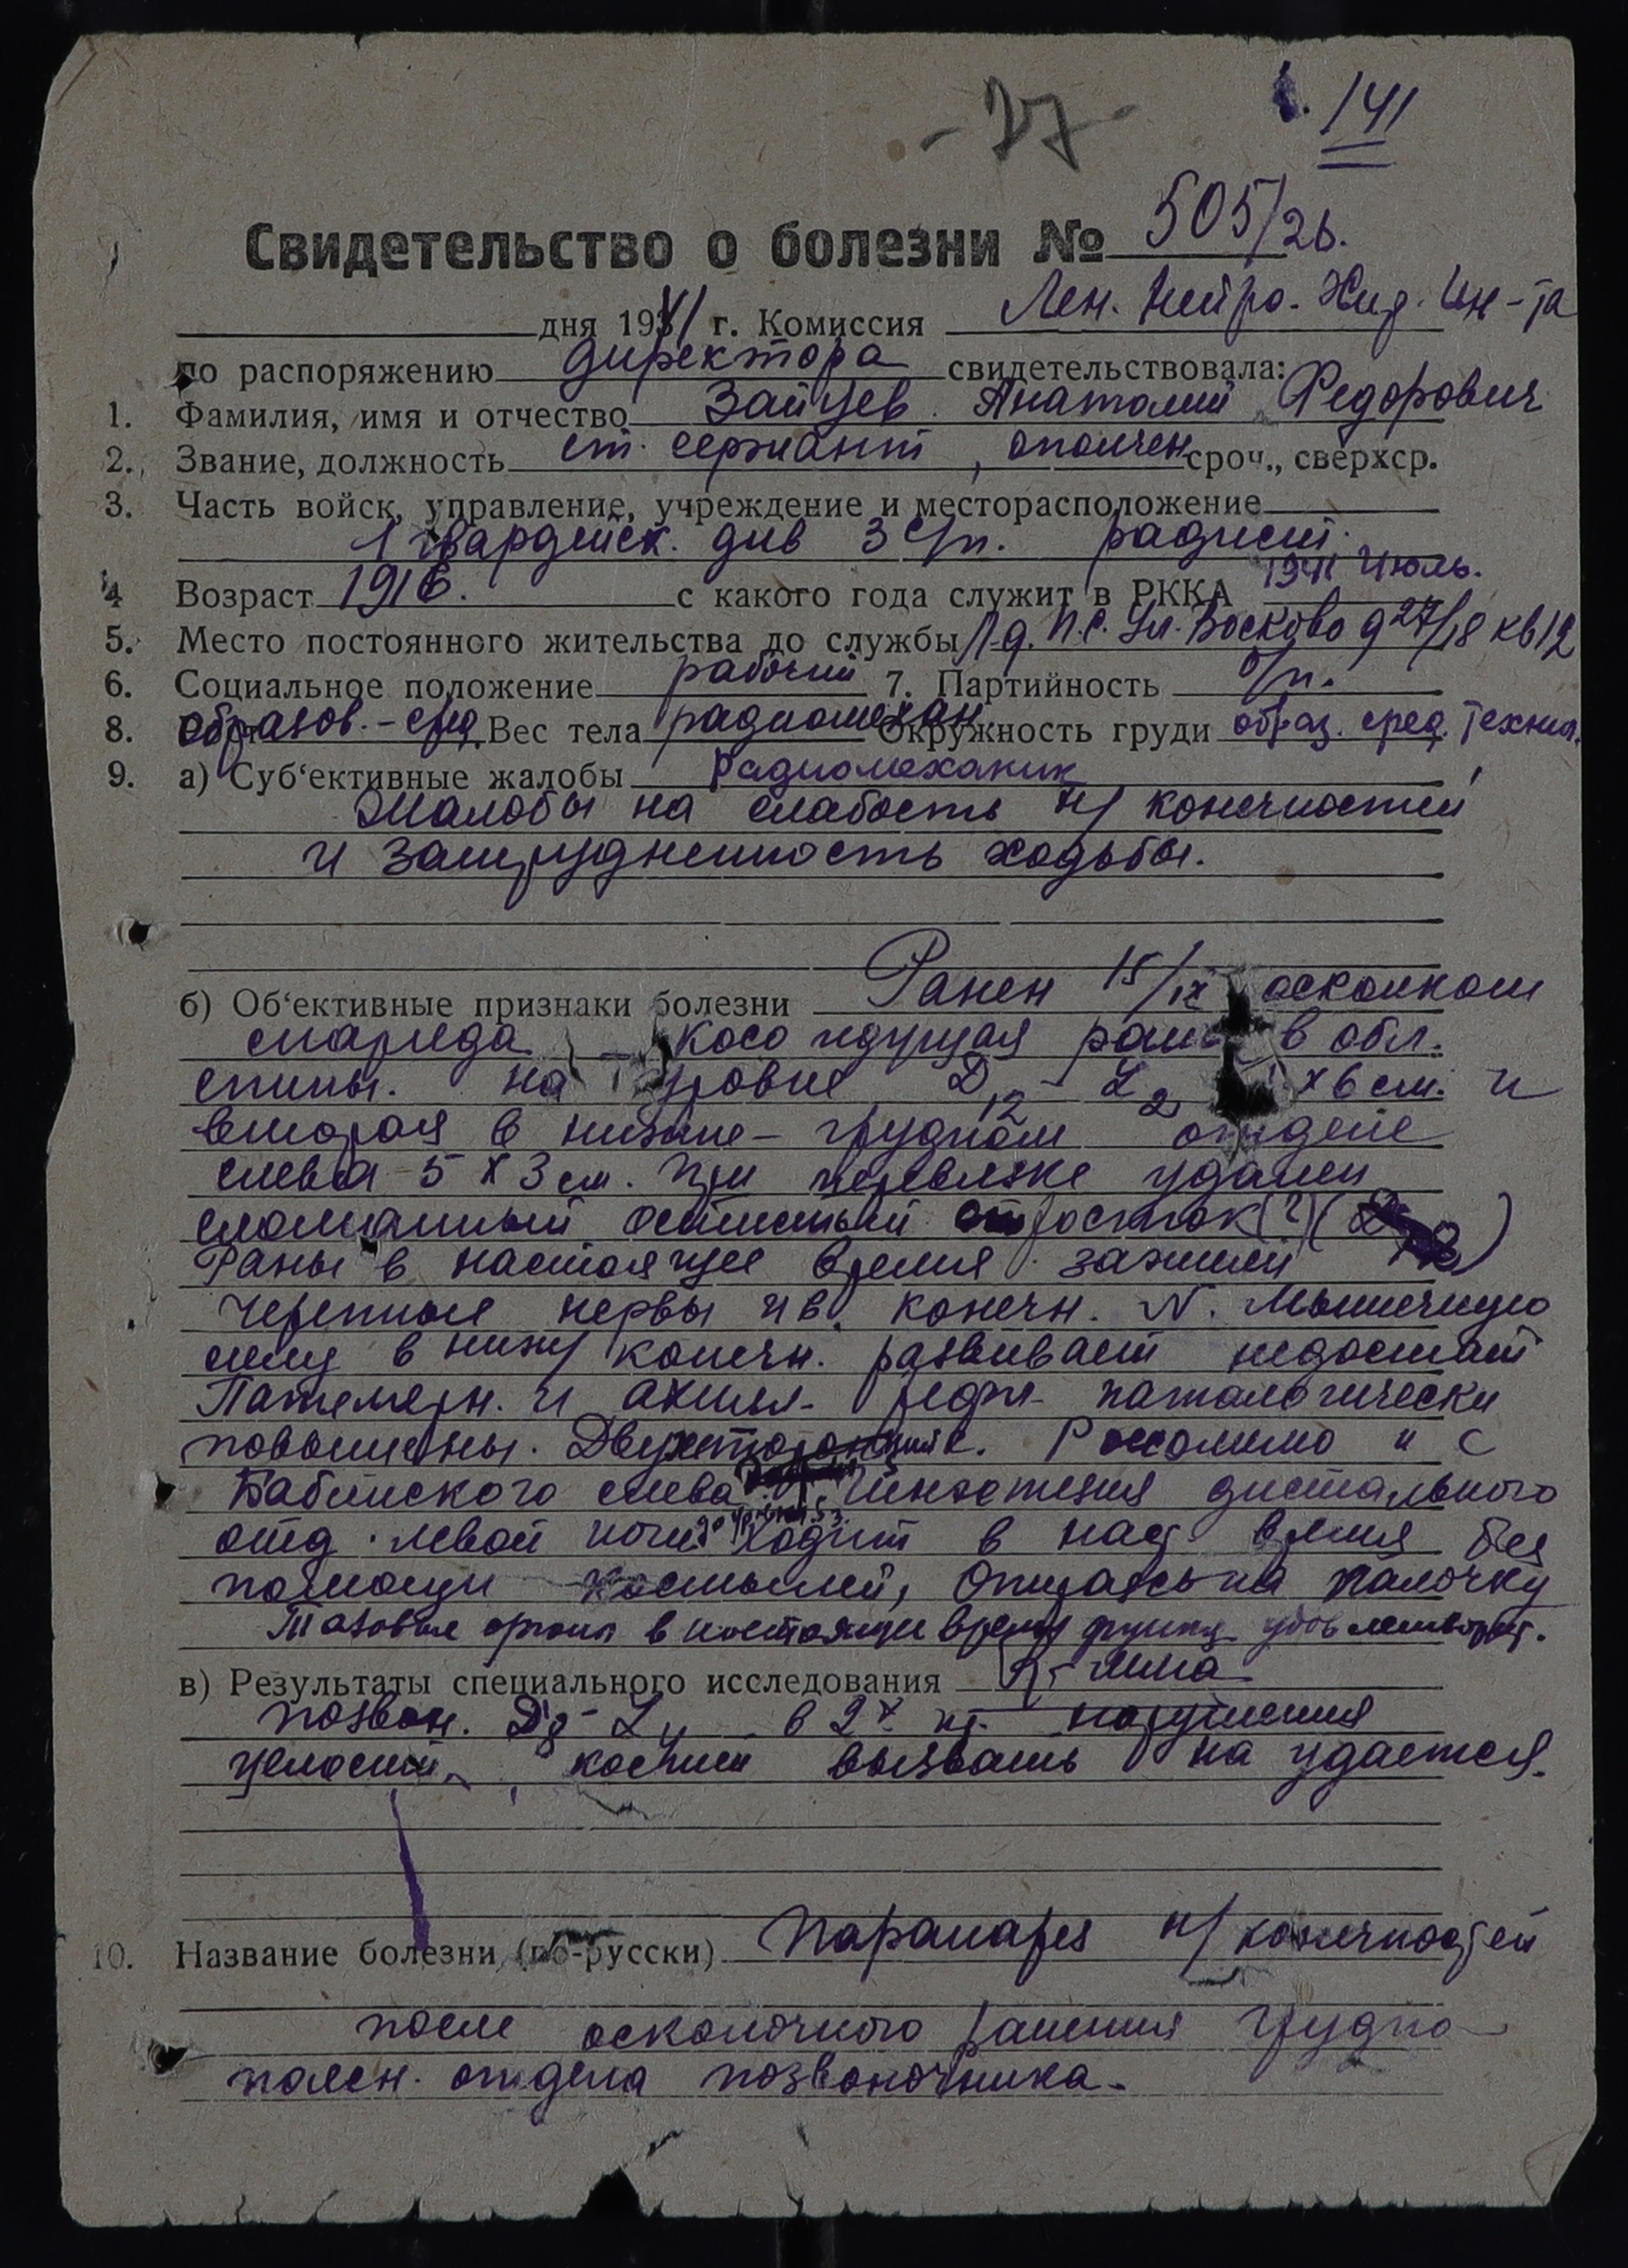 - 27 -
141
Свидетельство о болезни № 505/26.
дня 1941 г. Комиссия Лен. Нейро-Хир. Ин-та
по распоряжению директора свидетельствовала:
1. Фамилия, имя и отчество Зайцев Анатолий Федорович
2. Звание, должность ст. сержант, ополчен сроч., сверхср.
3. Часть войск, управление, учреждение и месторасположение
1 гвардейск. див 3 с/п. радист.
4 Возраст 1916. с какого года служит в РККА 1941 Июль.
5. Место постоянного жительства до службы Л-д. П.С. Ул. Воскова д 27/18 кв 12
6. Социальное положение рабочий 7. Партийность б/п.
8. образов. - сред Вес тела радиомехан Окружность груди образ. сред. техни.
9. а) Суб‘ективные жалобы Радиомеханик
Жалобы на слабость н/ конечностей
и затрудненность ходьбы.
б) Об‘ективные признаки болезни Ранен 15/IX осколком
снаряда косо идущая рана в обл.
спины. на уровне D12 - L2 х 6 см. и
вторая в нижне-грудном отделе
слева 5 х 3 см. При перевязке удален
сломанный остистый отросток (?)
Раны в настоящее время зажили
Черепные нервы и в. конечн. N. Мышечную
силу в нижн/ конечн. развивает недостат
Пателлярн. и ахилл- рефл- патологически
повышены. Двухсторонний с. Россолимо и с
Бабинского слева. Гипостезия дистального
отд. левой ноги Ходит в наст время без
помощи костылей, опираясь на палочку
Тазовые органы в настоящее время функц удовлетворит.
в) Результаты специального исследования
позвон. D8 - L4 в 2х пр. нарушения
целости костей вызвать на удается.
10. Название болезни (по-русски) Парапарез н/ конечностей
после осколочного ранения грудно
поясн. отдела позвоночника.